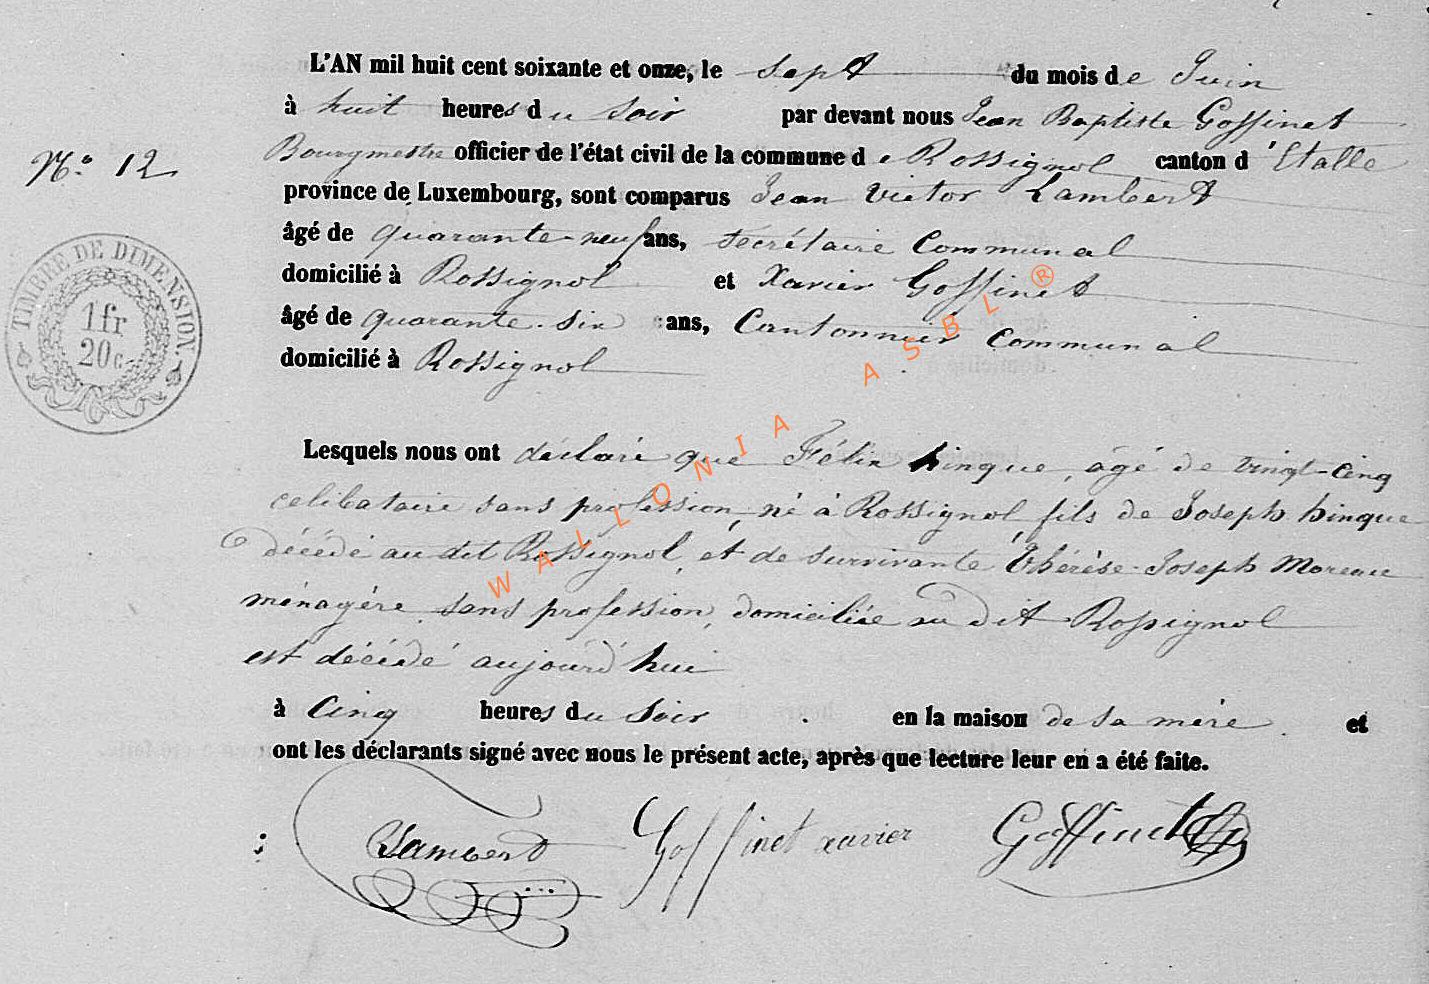 L'AN mil huit cent soixante et onze, le sept du mois de Juin
à huit heures du soir par devant nous Jean Baptiste Goffinet
Nº 12
Bourgmestre officier de l'état civil de la commune de Rossignol canton d'Etalle
province de Luxembourg, sont comparus Jean Victor Lambert
âgé de quarante-neuf ans, secrétaire Communal
domicilié à Rossignol et Xavier Goffinet
âgé de quarante-six ans, Cantonnier Communal
domicilié à Rossignol
TIMBRE DE DIMENSION.
1fr
20c.
Lesquels nous ont déclaré que Félix hinque, âgé de vingt-cinq
celibataire sans profession, né à Rossignol fils de Joseph hinque
décédé au dit Rossignol, et de survivante Thérèse-Joseph Moreau
ménagère sans profession, domiciliée au dit Rossignol
est décédé aujourd'hui
à cinq heures du soir en la maison de sa mère et
ont les déclarants signé avec nous le présent acte, après que lecture leur en a été faite.
Lambert Goffinet xavier Goffinet
WALLONIA ASBL ®